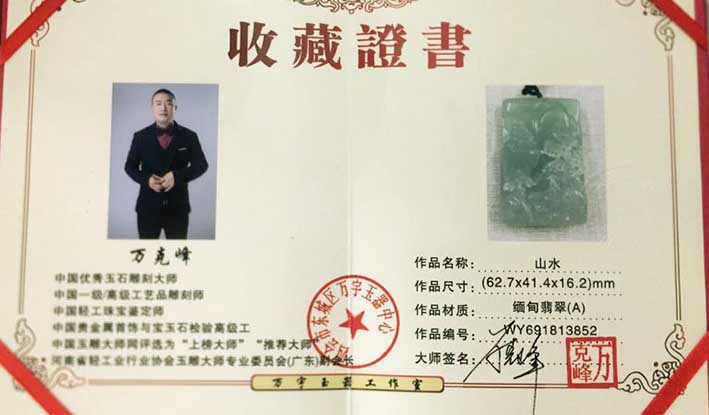 收藏證書
万克峰
中国优秀玉石雕刻大师
中国一级/高级工艺品雕刻师
中国轻工珠宝鉴定师
中国贵金属首饰与宝玉石检验高级工
中国玉雕大师网评选为“上榜大师” “推荐大师”
河南省轻工业行业协会玉雕大师专业委员会(广东)副会长
作品名称： 山水
作品尺寸：(62.7x41.4x16.2)mm
作品材质： 缅甸翡翠(A)
作品编号： WY691813852
大师签名：
万克峰
市东城区万宇玉器中心
万宇玉器工作室